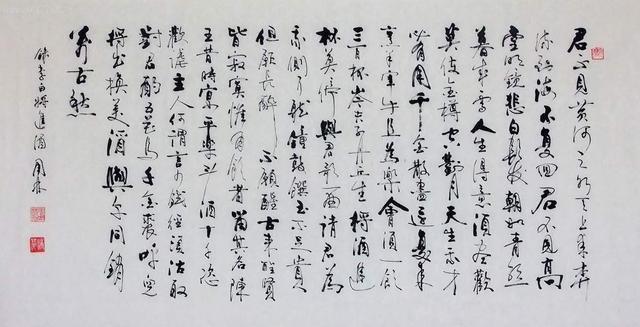 君不見黃河之水天上來奔
流到海不復回君不見高
堂明鏡悲白髮朝如青絲
暮成雪人生得意須盡歡
莫使金樽空對月天生我才
必有用千金散盡還復來
烹羊宰牛且為樂會須一飲
三百杯岑夫子丹丘生將酒進
杯莫停與君歌一曲請君為
我側耳聽鐘鼓饌玉不足貴
但願長醉不願醒古來聖賢
皆寂寞惟有飲者留其名陳
王昔時宴平樂斗酒十千恣
歡謔主人何謂言少錢徑須沽取
對君酌五花馬千金裘呼兒
將出換美酒與爾同銷
萬古愁
李白將進酒